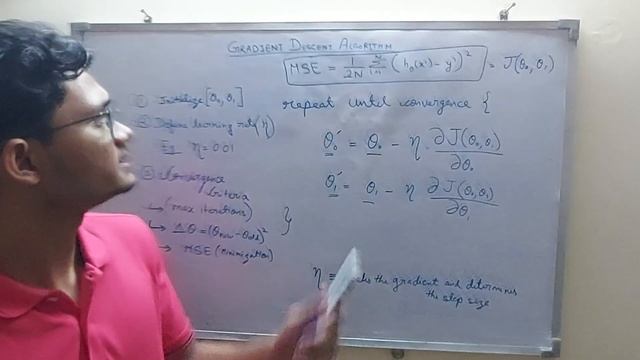 GRADIENT DESCENT ALGORITHM
MSE = 1/2N Σ i=1 N (hθ(xⁱ) - yⁱ)² = J(θ₀, θ₁)
① Initialize [θ₀, θ₁]
② Define learning rate (η)
Eg η = 0.01
③ Convergence
Criteria
↳ (max iterations)
↳ Δθ = (θnew - θold)²
→ MSE (minimization)
repeat until convergence {
θ₀' = θ₀ - η ∂J(θ₀, θ₁)/∂θ₀
θ₁' = θ₁ - η ∂J(θ₀, θ₁)/∂θ₁
}
η ≡ the gradient and determines
the step size